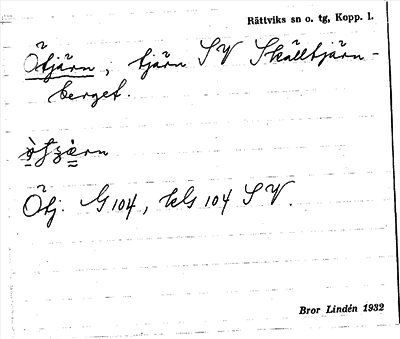 Rättviks sn o. tg, Kopp. l.
Õtjärn, tjärn SV Skälltjärn-
berget.
Õtj. G 104, kG 104 SV.
Bror Lindén 1932